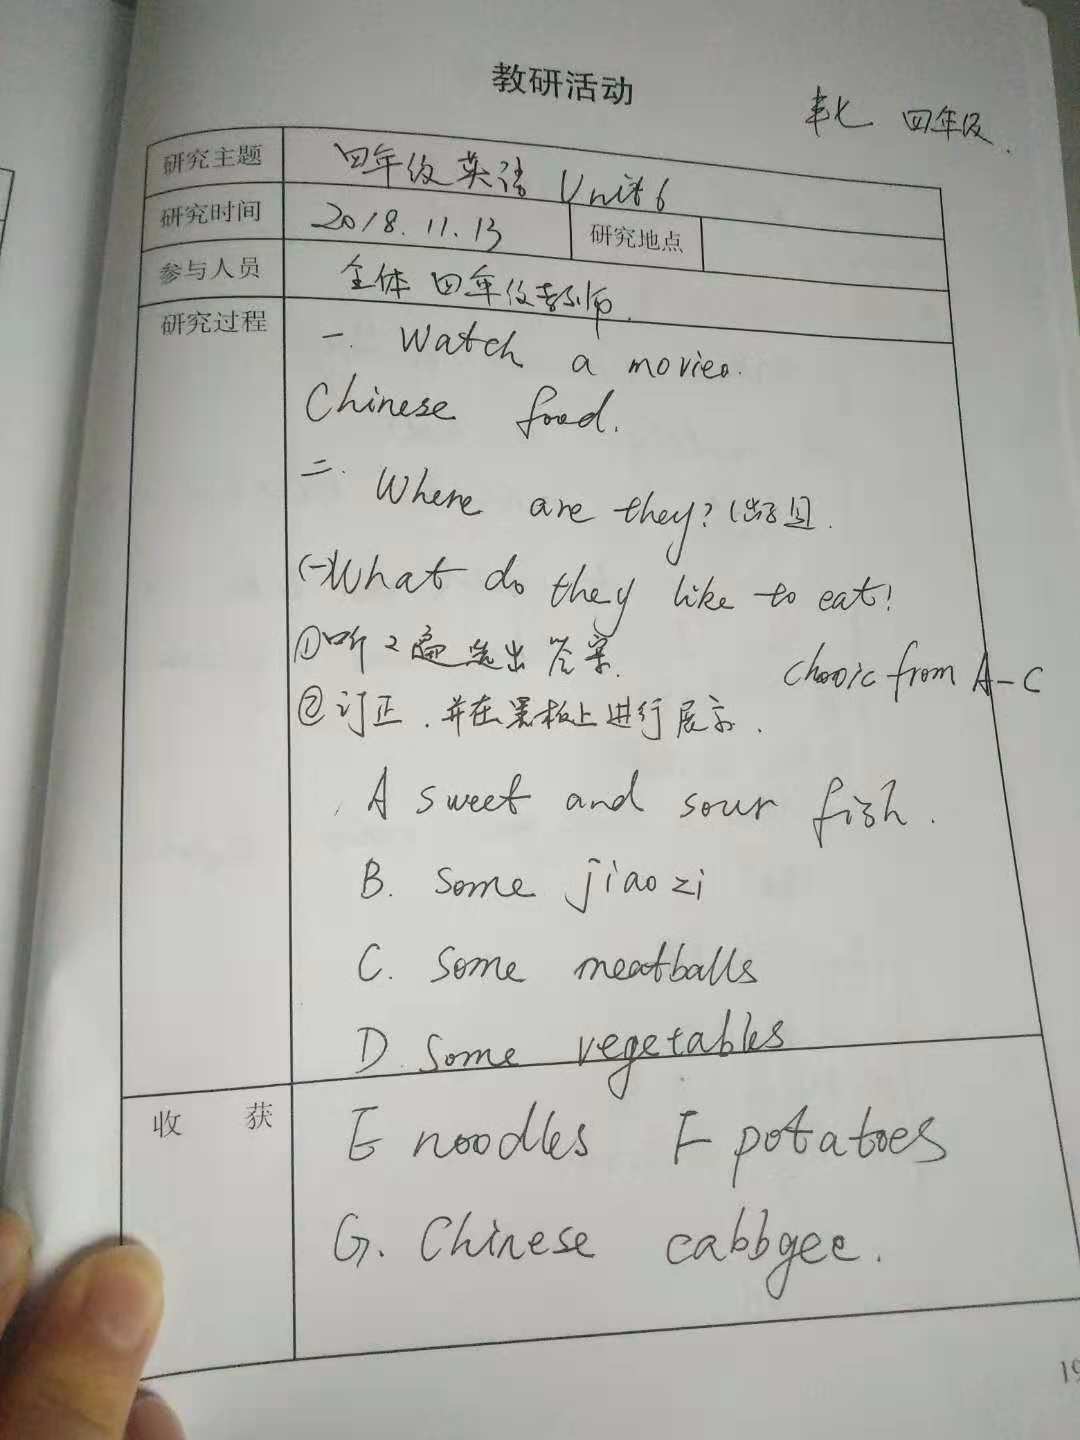 教研活动
四年级
研究主题 四年级英语 Unit 6
研究时间 2018.11.13 研究地点
参与人员 全体四年级教师.
研究过程 一. Watch a movie.
Chinese food.
二. Where are they?
(一)What do they like to eat!
①听2遍选出答案.
choose from A-C
②订正.并在黑板上进行展示.
A sweet and sour fish.
B. Some jiao zi
C. Some meatballs
D. Some vegetables
收获 E noodles F potatoes
G. Chinese cabbgee.
19